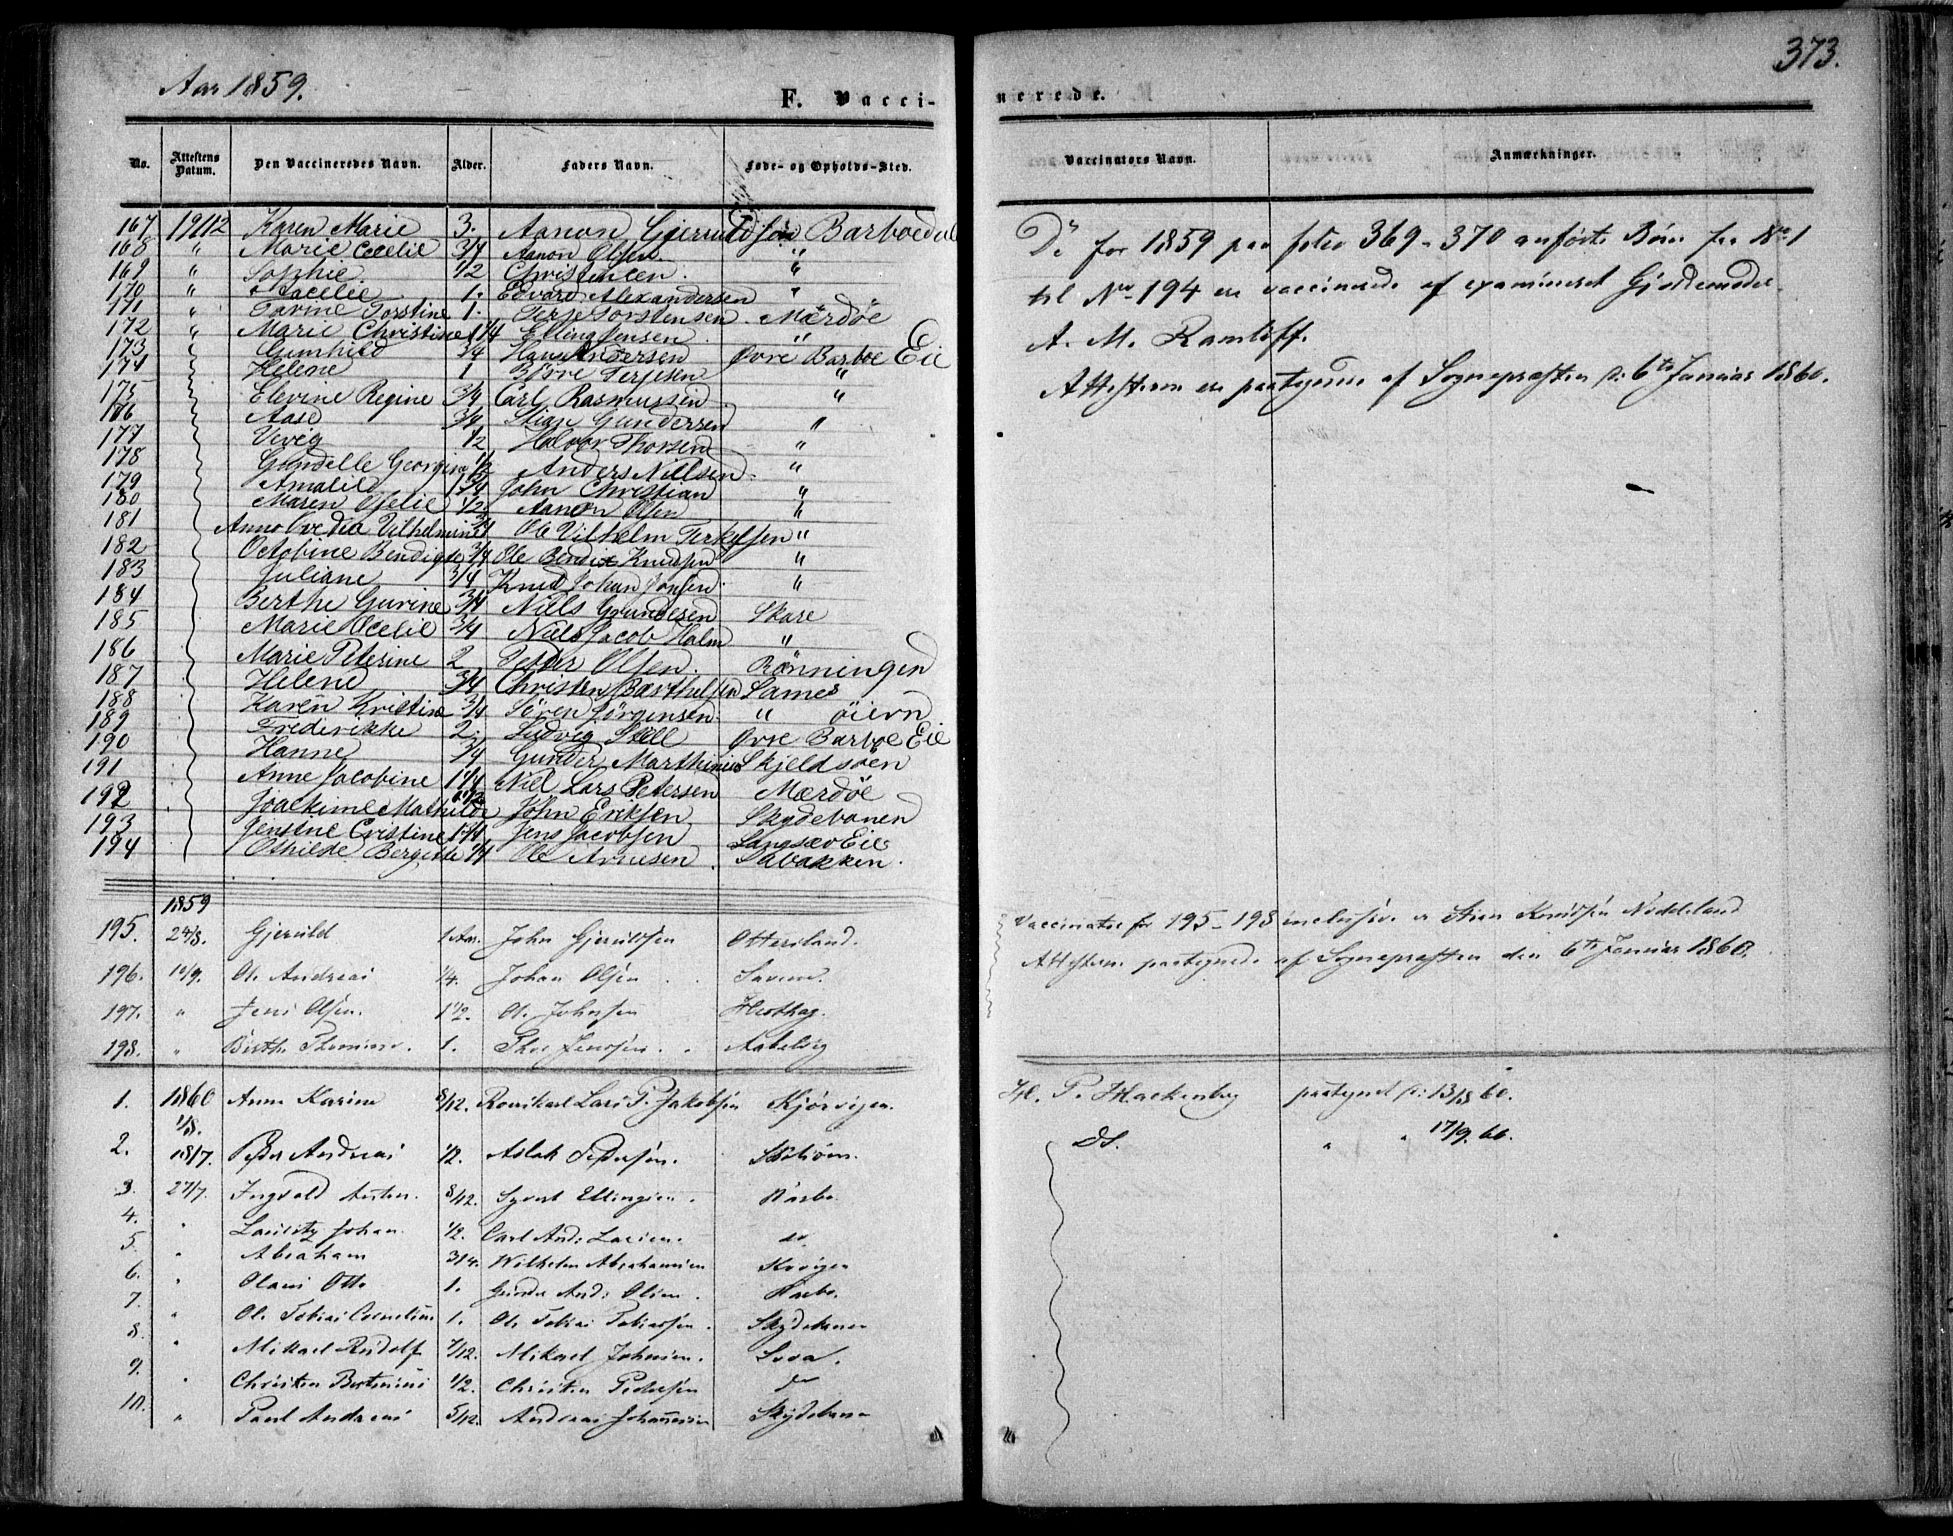 Aar 1859.
373.
F. Vacci-
nerede.
No. Attestens Datum. Den Vaccineredes Navn. Alder. Faders Navn. Føde- og Opholds-Sted. Vaccinators Navn. Anmærkninger.
167 19/12 Karen Marie 3. Aanon Gjeruldsen Barboedal
168 " Marie Cecelie 3/4 Aanon Olsen. "
169 " Sophie 1/2 Christensen. "
170 " Edvard Alexandersen "
171 " Torine Torstine 1. Terje Torstensen Mærdöe
172 " Marie Christine 1 1/4 Elling Jensen "
173 Gunhild 3/4 Hans Andersen Øvre Barboe Eie
174 Helene 1 Börre Terjesen "
175 Elevine Regine 3/4 Carl Rasmussen "
176 Aase 3/4 Stian Gundersen "
177 Vevig 1/2 Halvor Thorsen "
178 Gunelle Georgine 1/2 Anders Nillsen "
179 Amalie 1 3/4 John Christian "
180 Maren Ofelie 1/2 Aanon Olsen "
181 Anne Ovedia Vilhelmine 3/4 Ole Vilhelm Terkelsen "
182 Octobine Bendigte 3/4 Ole Bendix Knudsen "
183 Juliane 3/4 Knud Johan Jonsen "
184 Berthe Gurine 3/4 Niels Gundesen Skare
185 Marie Ocelie 3/4 Niels Jacob Halm "
186 Marie Peterine 2 Peder Olsen Rönningen
187 Helene 3/4 Christen Barthelsen Sames
188 Karen Kristine 3/4 Sören Jörgensen " öiern
189 Frederikke 2. Ludvig Skell Øvre Barboe Eie
190 Hanne 3/4 Gunder Marthinius Skjeldsöen
191 Anne Jacobine 1 1/4 Niel Lars Petersen Mærdöe
192 Joackime Mathilde 1 1/2 John Eriksen Skydebanen
193 Jenstne Cristine 1 1/4 Jens Jacobsen Langsæv Eie
194 Othilde Bergitte 1/4 Ole Arnesen Labakken.
De for 1859 paa folio 369-370 anførte Børn fra No 1
til No 194 ere vaccinerede af examineret Gjordemoder
A. M. Ramløff.
Attesterne ere paategnede af Sognepræsten D: 6te Januar 1860.
1859
195. 24/8. Gjeruld 1 Aar. John Gjeruldsen Ottersland.
196. 12/9. Ole Andreas 1/4. Johan Olsen
197. " Jens Olsen. 1 1/2. Ole Johnsen
198. " Birthe Thomine. 1. Thor Jensen.
Vaccinator for 195-198 inclusive er Stian Knudsen Nødeland
Attesterne paategnede af Sognepræsten den 6te Januar 1860.
1. 1860 1/8. Anne Karine 8/12. Lars P. Jakobsen Kjørvigen. H. P. Hackenberg paategnet d: 13/8 60.
2. 18/7. Peder Andreas 1/2. Aslak Pedersen. Ds. " " 17/9. 60.
3. 27/7. Ingvald Anton. 8/12. Syvert Ellingsen. Barbo.
4. " Lauritz Johan. 1/2. Carl And: Larsen. do
5. " Abraham 3/4. Wilhelm Abrahamsen
6. " Olaus Otto 1. Gunder And: Olsen. Barbo.
7. " Ole Tobias Cornelius 1. Ole Tobias Tobiassen. Skydebanen
8. " Mikael Rudolf 7/12. Mikael Johnsen.
9. " Christen 1/2. Christen Pedersen do
10. " Paul Andreas 5/12. Andreas Johannesen Skydebanen